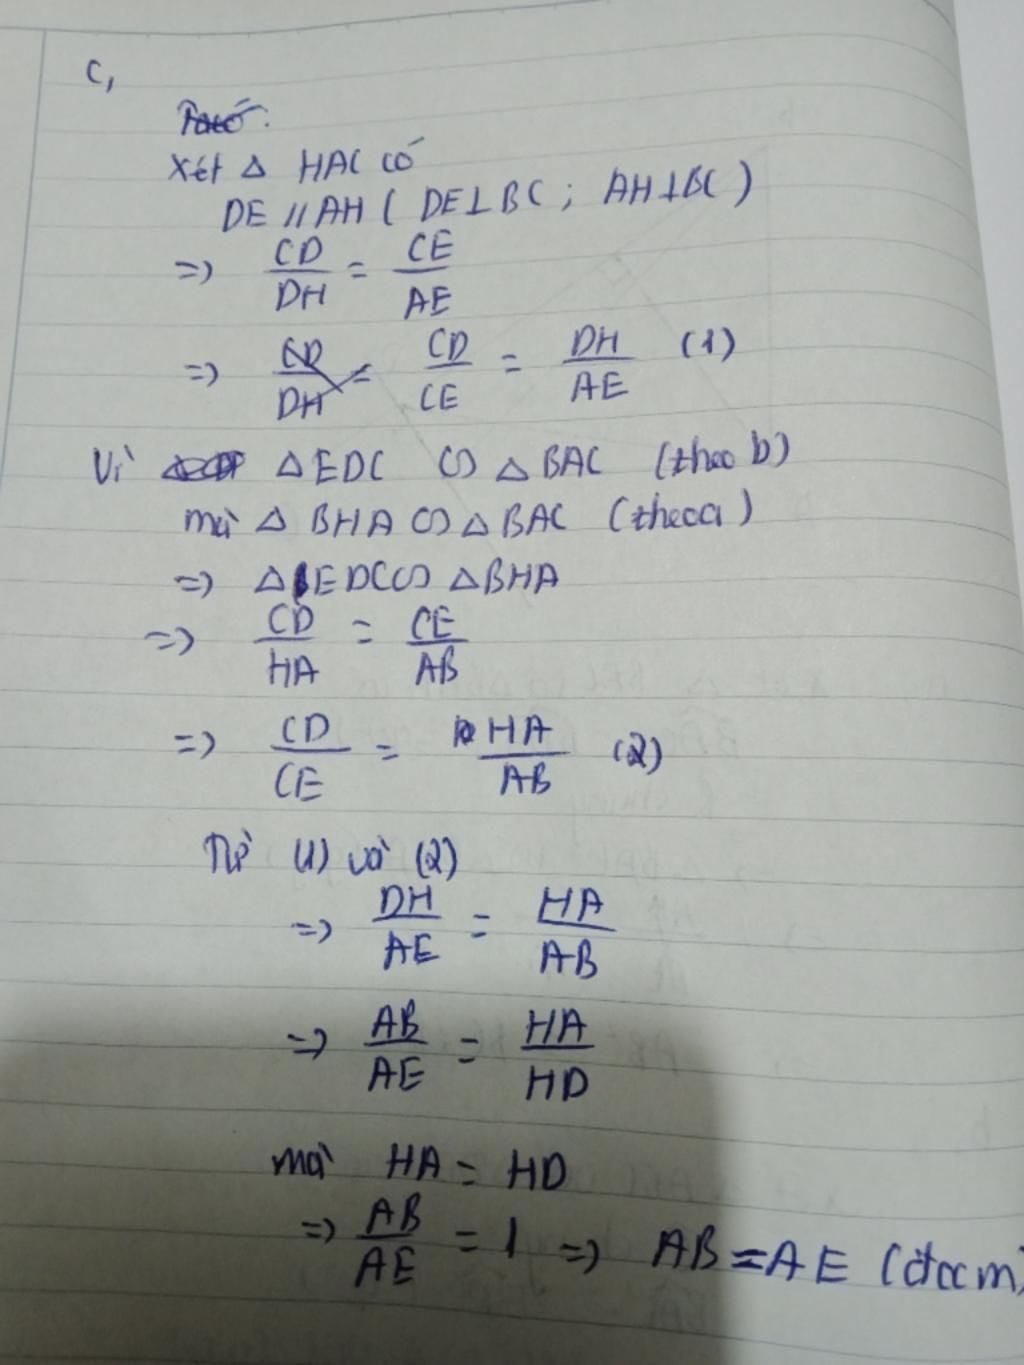 c,
Ta có:
Xét △ HAC có
DE // AH ( DE⊥BC ; AH⊥BC )
=> CD/DH = CE/AE
=> CD/DH = CD/CE = DH/AE (1)
Vì △EDC ∽ △BAC (theo b)
mà △ BHA ∽ △BAC (theo a)
=> △EDC ∽ △BHA
=> CD/HA = CE/AB
=> CD/CE = HA/AB (2)
Từ (1) và (2)
=> DH/AE = HA/AB
=> AB/AE = HA/HD
mà HA = HD
=> AB/AE = 1 => AB = AE (đccm)